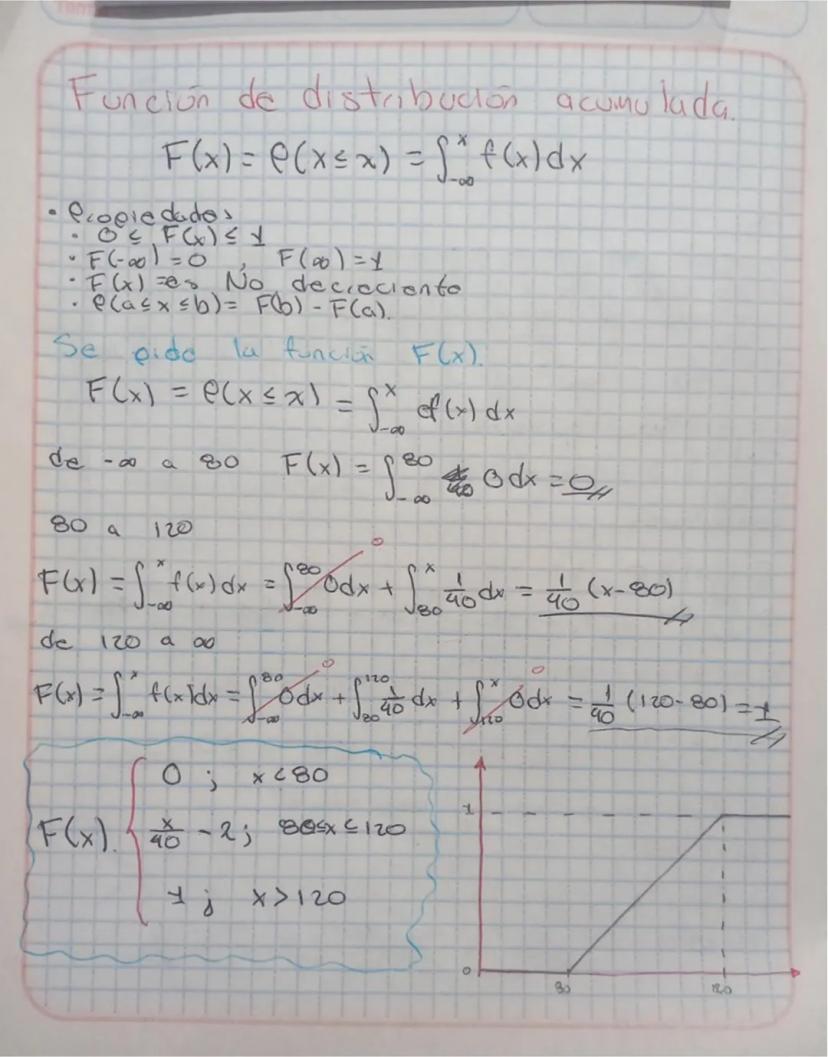 Función de distribución acumulada.
F(x) = P(X ≤ x) = ∫_{-∞}^{x} f(x) dx
• Propiedades
• 0 ≤ F(x) ≤ 1
• F(-∞) = 0 , F(∞) = 1
• F(x) = es No decreciente
• P(a ≤ x ≤ b) = F(b) - F(a).
Se pide la función F(x).
F(x) = P(X ≤ x) = ∫_{-∞}^{x} f(x) dx
de -∞ a 80 F(x) = ∫_{-∞}^{80} 0 dx = 0
80 a 120
F(x) = ∫_{-∞}^{x} f(x) dx = ∫_{-∞}^{80} 0 dx + ∫_{80}^{x} 1/40 dx = 1/40 (x-80)
de 120 a ∞
F(x) = ∫_{-∞}^{x} f(x) dx = ∫_{-∞}^{80} 0 dx + ∫_{80}^{120} 1/40 dx + ∫_{120}^{x} 0 dx = 1/40 (120-80) = 1
0 ; x < 80
F(x). x/40 - 2 ; 80 ≤ x ≤ 120
1 ; x > 120
1
0
80 120